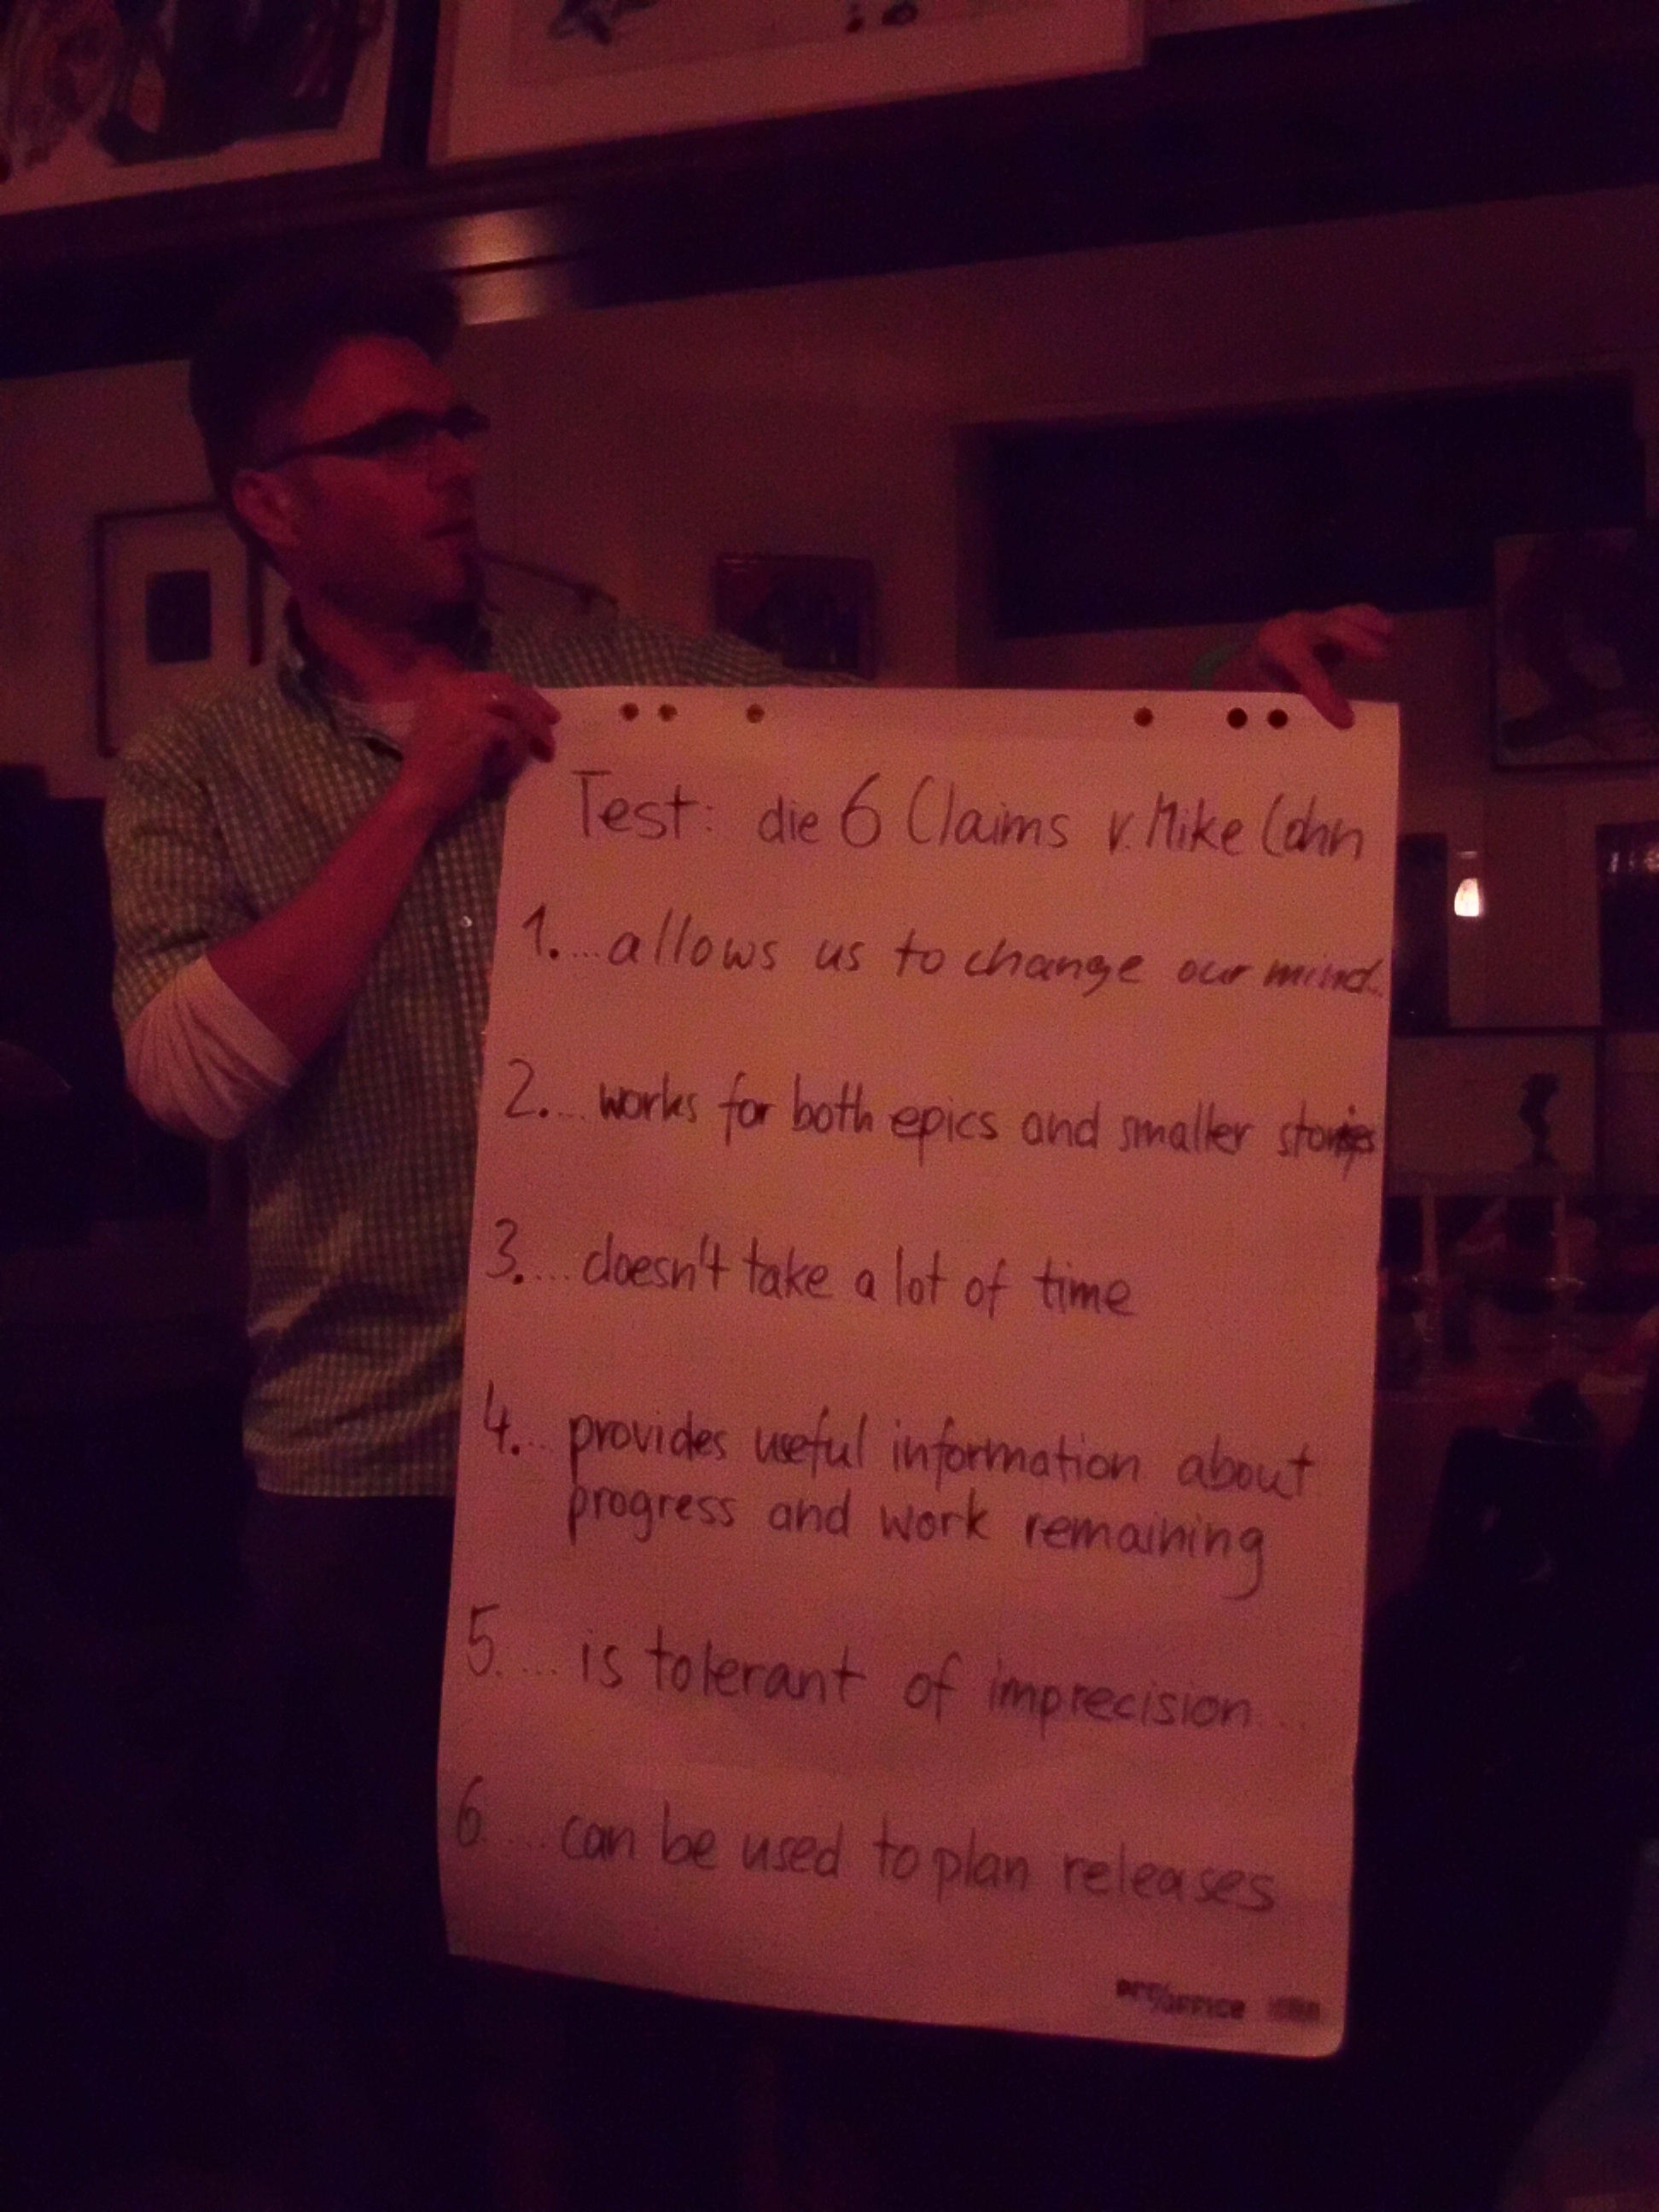 Test: die 6 Claims v. Mike Cohn
1. ... allows us to change our mind..
2. ... works for both epics and smaller stories
3. ... doesn't take a lot of time
4. ... provides useful information about
progress and work remaining
5. ... is tolerant of imprecision ...
6 .... can be used to plan releases